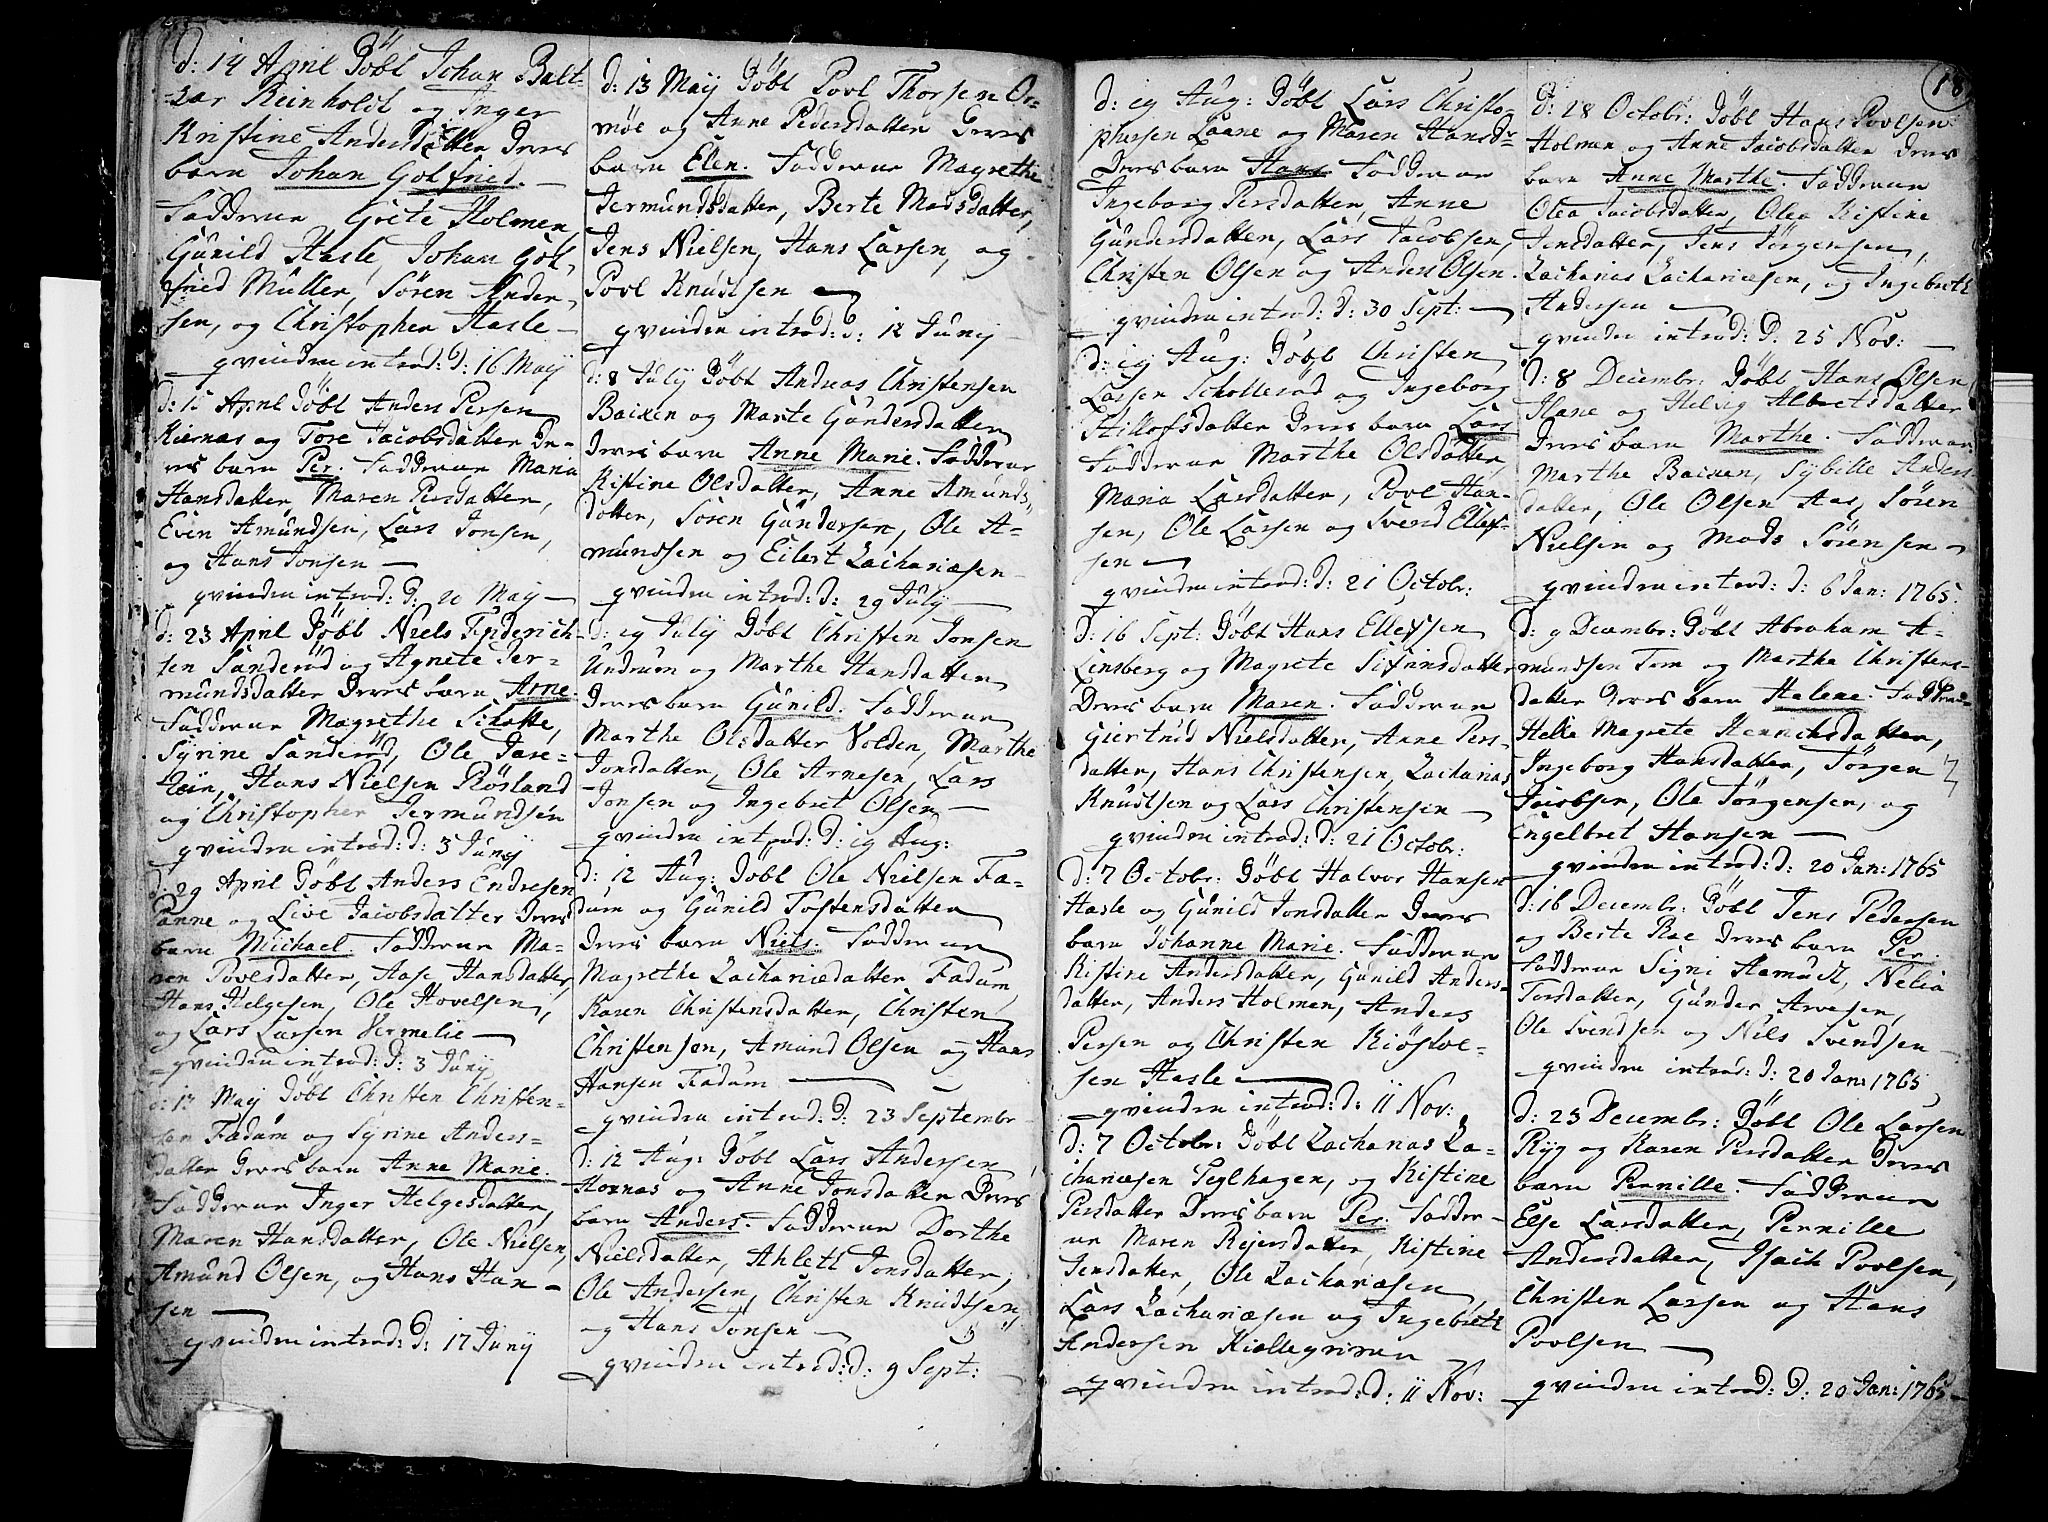 d: 14 April Döbt Johan Balt-
-zar Reinholdt og Inger
Kristine Andersdatter Deres
barn Johan Gotfried. —
Fadderne Grete Holmen,
Gunild Hasle, Johan Got-
fried Müller, Sören Ander-
sen, og Christopher Hasle —
qvinden introd: d: 16 Maij
d: 15 April Döbt Anders Persen
Kiernaas og Tore Jacobsdatter De-
res barn Per. Fadderne Maria
Hansdatter, Maren Persdatter,
Even Amundsen, Lars Jonsen,
og Hans Jonsen —
qvinden introd: d: 20 Maij —
d: 23 April Döbt Niels Friderich-
sen Sanderöd og Agnete Jer-
mundsdatter Deres barn Arne.
Fadderne Magrethe Schotte,
Syrine Sanderöd, Ole Jare-
teien, Hans Nielsen Röesland
og Christopher Jermundsen
qvinden introd: d: 3 Junij
d: 29 April Döbt Anders Endresen
Panne og Live Jacobsdatter Deres
barn Michael. Fadderne Ma-
ren Povelsdatter, Aase Hansdatter,
Hans Helgesen, Ole Hovelsen,
og Lars Larsen Vermelie —
qvinden introd: d: 3 Junij
d: 13 Maij Döbt Christen Christen-
sen Fadum og Syrine Anders-
datter Deres barn Anne Marie.
Fadderne Inger Helgesdatter,
Maren Hansdatter, Ole Nielsen,
Amund Olsen, og Hans Han-
sen —
qvinden introd: d: 17 Junij
d: 13 Maij Döbt Povl Thorsen Or-
möe og Anne Pedersdatter Deres
barn Elen. Fadderne Magrethe
Jermundsdatter, Berte Madsdatter,
Jens Nielsen, Hans Larsen, og
Povl Knudtsen —
qvinden introd: d: 12 Junij
d: 8 July Döbt Andreas Christensen
Baixen og Marte Gundersdatter
Deres barn Anne Marie. Fadderne
Kistine Olsdatter, Anne Amunds-
datter, Sören Gundersen, Ole A-
mundsen og Eilert Zachariæsen —
qvinden introd: d: 29 July —
d: 19 July Döbt Christen Jonsen
Undrum og Marthe Hansdatter
Deres barn Gunild. Fadderne
Marthe Olsdatter Volden, Marthe
Jonsdatter, Ole Arnesen, Lars
Jonsen og Ingebret Olsen —
qvinden introd: d: 19 Aug:
d: 12 Aug: Döbt Ole Nielsen Fa-
dum og Gunild Tostensdatter
Deres barn Niels. Fadderne
Magrethe Zachariædatter Fadum,
Karen Christensdatter, Christen
Christensen, Amund Olsen og Hans
Hansen Fadum —
qvinden introd: d: 23 Septembr
d: 12 Aug: Döbt Lars Andersen
Hornas og Anne Jonsdatter Deres
barn Anders. Fadderne Dorthe
Nielsdatter, Ahlett Jonsdatter,
Ole Andersen, Christen Knudtsen,
og Hans Jonsen —
qvinden introd: d: 9 Sept: —
18
d: 19 Aug: Döbt Lars Christo-
phersen Laane og Maren Hansdr
Deres barn Hans Fadderne
Ingeborg Persdatter, Anne
Gundersdatter, Lars Jacobsen,
Christen Olsen og Anders Olsen.
qvinden introd: d: 30 Sept: —
d: 19 Aug: Döbt Christen
Larsen Schollerød og Ingeborg
Stillofsdatter Deres barn Lars
Fadderne Marthe Olsdatter,
Maria Larsdatter, Povl Han-
sen, Ole Larsen og Svend Ellef-
sen —
qvinden introd: d: 21 Octobr:
d: 16 Sept: Döbt Hans Ellefsen
Linsberg og Magrete Sifrinsdatter
Deres barn Maren. Fadderne
Giertrud Nielsdatter, Anne Pers-
datter, Hans Christensen, Zacharias
Knudtsen og Lars Christensen —
qvinden introd: d: 21 Octobr:
d: 7 Octobr: Döbt Halvor Hansen
Hasle og Gunild Jonsdatter Deres
barn Johanne Marie. Fadderne
Kistine Andersdatter, Gunild Anders-
datter, Anders Holmen, Anders
Persen og Christen Kiöstol-
sen Hasle —
qvinden introd: d: 11 Nov:
d: 7 Octobr: Döbt Zacharias Za-
chariæsen Teglhagen, og Kistine
Persdatter Deres barn Per. Fadder-
ne Maren Rejersdatter, Kistine
Jensdatter, Ole Zachariæsen,
Lars Zachariæsen og Ingebreth
Andersen Kiellegrinen
qvinden introd: d: 11 Nov:
d: 28 Octobr: Döbt Hans Povlsen
Holmen og Anne Jacobsdatter Deres
barn Anne Marthe. Fadderne
Olea Jacobsdatter, Olea Kistine
Jensdatter, Jens Jörgensen,
Zacharias Zachariæsen, og Ingebreth
Andersen —
qvinden introd: d. 25 Nov: —
d: 8 Decembr: Döbt Hans Olsen
Hane og Helvig Albretsdatter
Deres barn Marthe. Fadderne
Marthe Baixen, Sybille Anders
datter, Ole Olsen Aas, Sören
Nielsen og Mads Sörensen —
qvinden introd: d: 6 Jan: 1765.
d: 9 Decembr: Döbt Abraham A-
mundsen Tem og Marthe Christens-
datter Deres barn Helene. Fadderne
Helie Magrete Henrichsdatter,
Ingeborg Hansdatter, Jörgen
Jacobsen, Ole Jörgensen, og
Engelbret Hansen —
qvinden introd: d: 20 Jan: 1765
d: 16 Decembr: Döbt Jens Pedersen
og Berte Roe Deres barn Per.
Fadderne Signi Aamudt, Nelia
Torsdatter, Gunder Arvesen,
Ole Svendsen og Nils Svendsen —
qvinden introd: d: 20 Jan: 1765
d: 23 Decembr: Döbt Ole Larsen
Ryg og Karen Persdatter Deres
barn Pernille. Fadderne
Else Larsdatter, Pernille
Andersdatter, Isach Povlsen,
Christen Larsen og Hans
Povlsen —
qvinden introd: d: 20 Jan: 1765 —